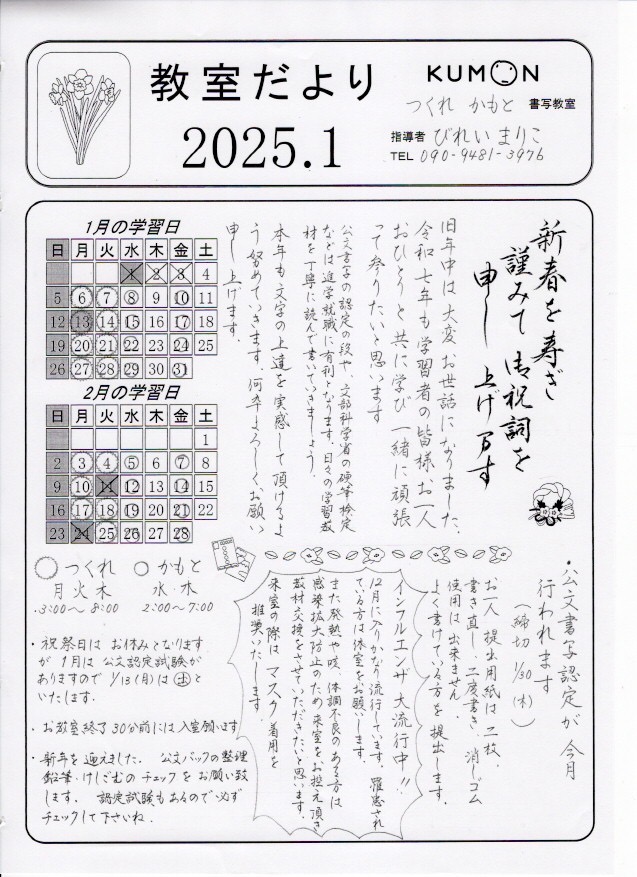 教室だより
2025.1
KUMON
つくれ かもと 書写教室
指導者 びれい まりこ
TEL 090-9481-3976
新春を寿ぎ
謹みて御祝詞を
申し上げます
旧年中は大変お世話になりました。
令和七年も学習者の皆様お一人
おひとりと共に学び一緒に頑張
って参りたいと思います
公文書写の認定の段や、文部科学省の硬筆検定
などは進学就職に有利となります。日々の学習教
材を丁寧に読んで書いていきましょう。
本年も文字の上達を実感して頂けるよ
う努めていきます。何卒よろしくお願い
申し上げます。
1月の学習日
日 月 火 水 木 金 土
1 2 3 4
5 6 7 8 9 10 11
12 13 14 15 16 17 18
19 20 21 22 23 24 25
26 27 28 29 30 31
2月の学習日
日 月 火 水 木 金 土
1
2 3 4 5 6 7 8
9 10 11 12 13 14 15
16 17 18 19 20 21 22
23 24 25 26 27 28
○つくれ ○かもと
月火木 水・木
3:00〜8:00 2:00〜7:00
・祝祭日はお休みとなります
が1月は公文認定試験が
ありますので1/13(月)は㊏と
いたします。
・お教室終了30分前には入室願います
・新年を迎えました。公文バックの整理
鉛筆・けしごむのチェックをお願い致
します。認定試験もあるので必ず
チェックして下さいね。
・公文書写認定が今月
行われます
(締切1/30(木))
お一人提出用紙は二枚、
書き直し、二度書き、消しゴム
使用は出来ません。
よく書けている方を提出します。
インフルエンザ大流行中!!
12月に入りかなり流行しています。罹患され
ている方は休室をお願いします。
また発熱や咳、体調不良のある方は
感染拡大防止のため来室をお控え頂き
教材交換をさせていただきたいと思います。
来室の際はマスク着用を
推奨いたします。